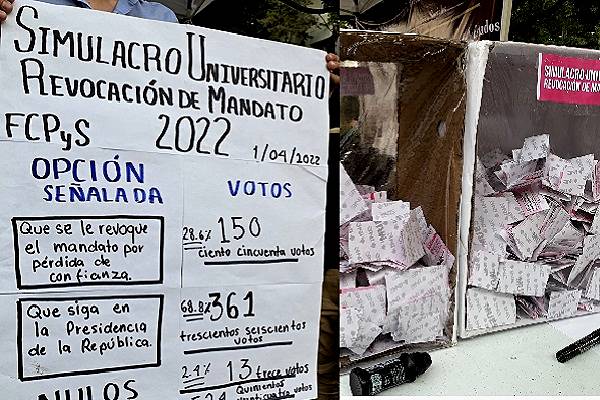 SIMULACRO UNIVERSITARIO
REVOCACIÓN DE MANDATO
FCPyS 2022 1/04/2022
OPCIÓN SEÑALADA
VOTOS
Que se le revoque
el mandato por
pérdida de
confianza.
28.6% 150
ciento cincuenta votos
Que siga en
la Presidencia
de la República.
68.8% 361
trescientos seiscientos
votos
NULOS
2.4% 13 trece votos
SIMULACRO UNI
REVOCACIÓN DE MA